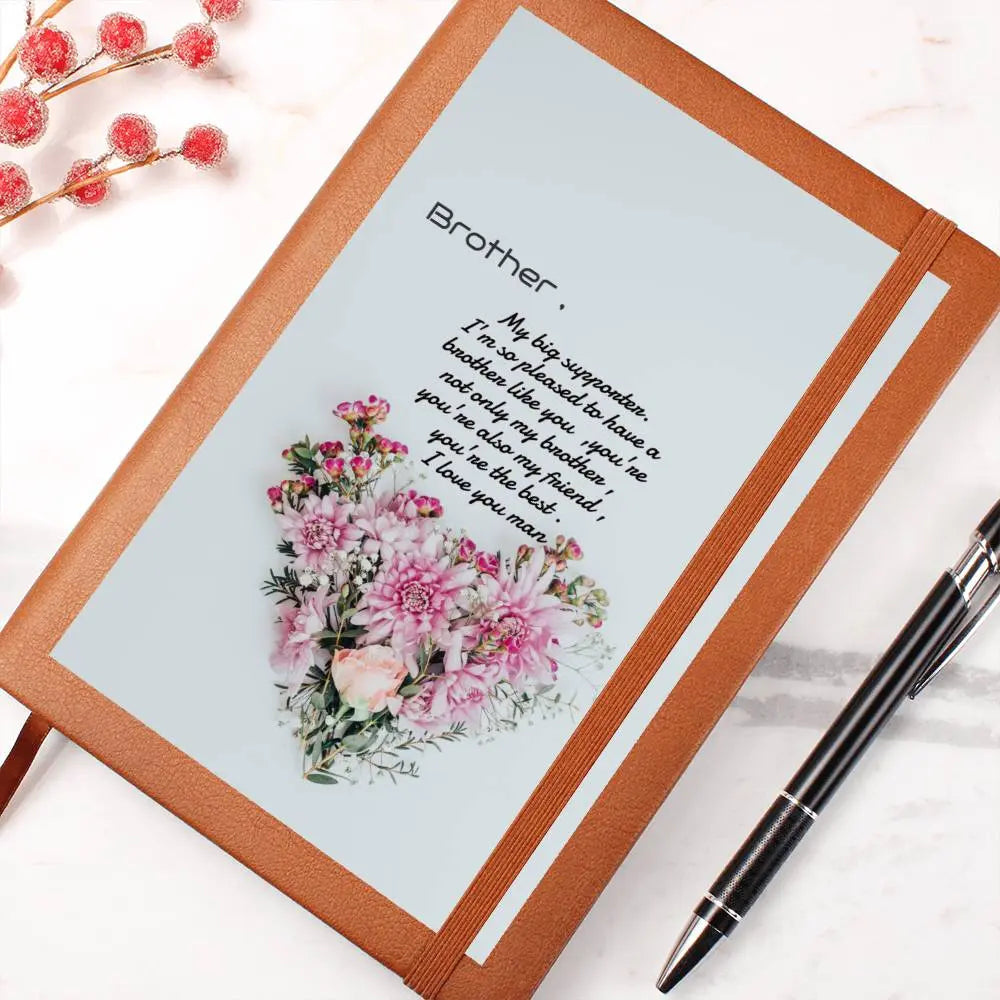 Brother ,
My big supporter.
I'm so pleased to have a
brother like you , you're
not only my brother,
you're also my friend ,
you're the best .
I love you man